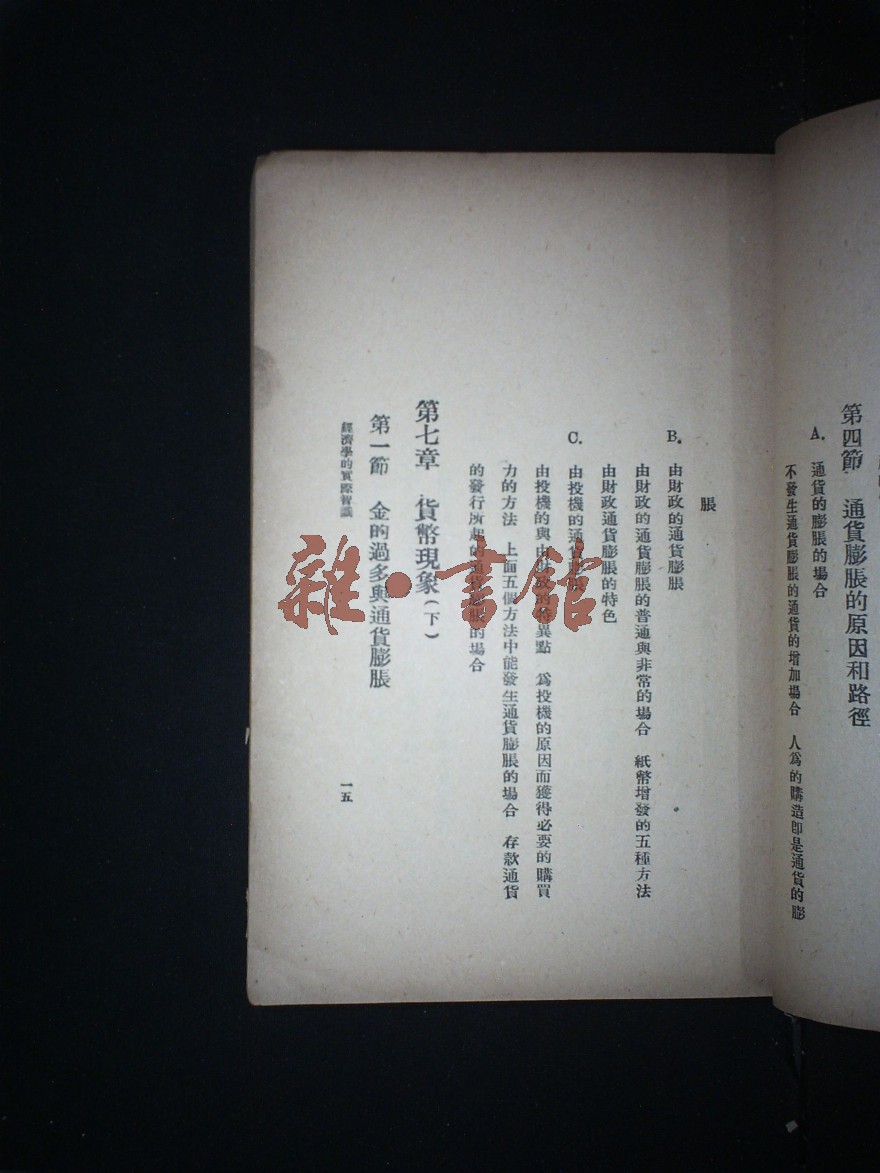 第四節　通貨膨脹的原因和路徑
A. 通貨的膨脹的場合
不發生通貨膨脹的通貨的增加場合　人爲的購造卽是通貨的膨
脹
B. 由財政的通貨膨脹
由財政的通貨膨脹的普通與非常的場合　紙幣增發的五種方法
由財政通貨膨脹的特色
C. 由投機的通貨膨脹
由投機的與由財政的特異點　爲投機的原因而獲得必要的購買
力的方法　上面五個方法中能發生通貨膨脹的場合　存款通貨
的發行所起的通貨膨脹的場合
第七章　貨幣現象（下）
第一節　金的過多與通貨膨脹
經濟學的實際智識
一五
雜·書館